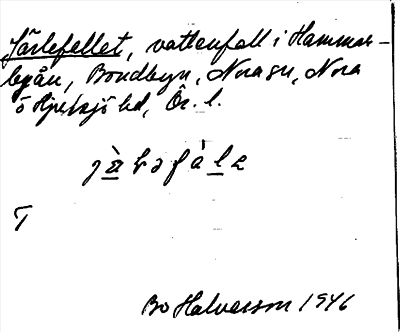 Järlefallet, vattenfall i Hammar-
byån, Bondbyn, Nora sn, Nora
o Hjulsjö hd, Ör. l.
T
Bo Halverson 1946